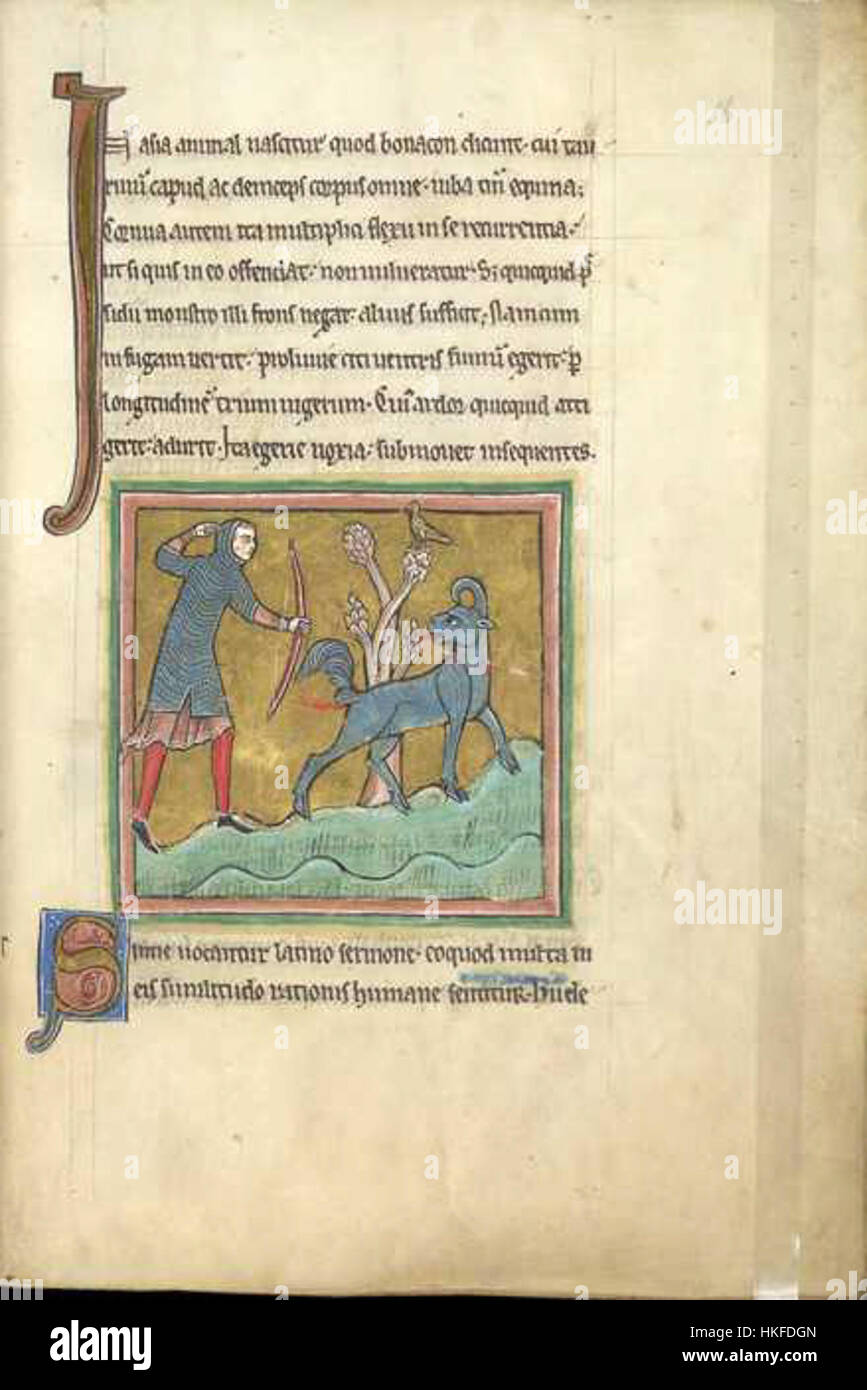 In asia animal nascitur quod bonacon dicunt. cui tau
rinū capud ac deinceps corpus omne. iuba tm̄ equina;
Cornua autem ita multiplici flexu in se recurrentia.
ut si quis in eo offendat. non uulneratur. Sꝫ quicquid p̄
sidii monstro illi frons negat. aluus sufficit; Nam cum
in fugam uertit. proluuie citi uentris fimū egerit. ꝑ
longitudinē trium iugerum. Cui᾿ ardor quicquid atti
gerit. adurit. Ita egerie noxia. submouet insequentes.
Simie uocantur latino sermone. eo quod multa in
eis similitudo rationis humane sentitur. Hee de
a alamy stock photo
alamy
Image ID: HKFDGN
www.alamy.com